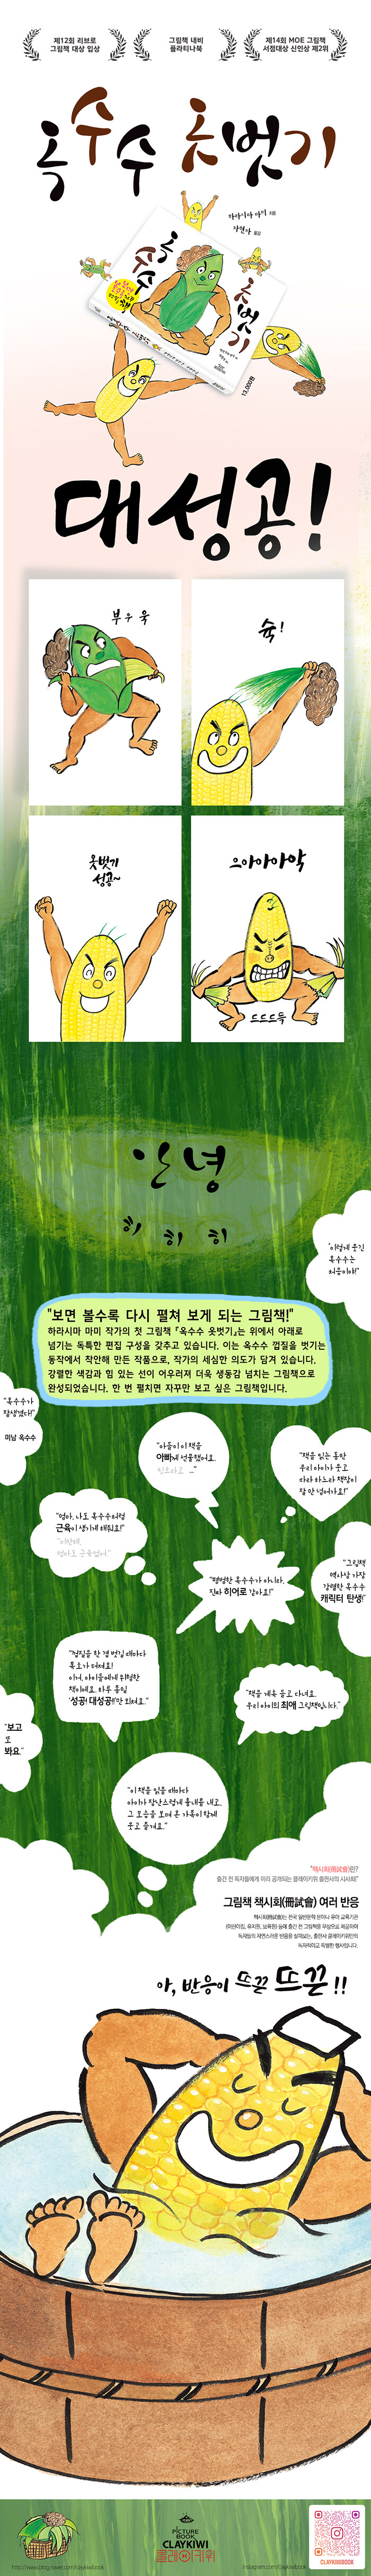 제12회 리브로
그림책 대상 입상
그림책 내비
플라티나북
제14회 MOE 그림책
서점대상 신인상 제2위
옥수수 옷벗기
하라시마 마미 지음
옥수수
옷벗기
13,000원
대성공!
부우욱
슉!
옷벗기
성공~
으아아아악
드드드득
안녕
히 히 히
"이렇게 웃긴
옥수수는
처음이야!"
"보면 볼수록 다시 펼쳐 보게 되는 그림책!"
하라시마 마미 작가의 첫 그림책 『옥수수 옷벗기』는 위에서 아래로
넘기는 독특한 편집 구성을 갖추고 있습니다. 이는 옥수수 껍질을 벗기는
동작에서 착안해 만든 작품으로, 작가의 세심한 의도가 담겨 있습니다.
강렬한 색감과 힘 있는 선이 어우러져 더욱 생동감 넘치는 그림책으로
완성되었습니다. 한 번 펼치면 자꾸만 보고 싶은 그림책입니다.
"옥수수가
잘생겼다!"
미남 옥수수
"아들이 이 책을
아빠께 선물했어요.
"책을 읽는 동안
우리 아이가 웃고
따라 하느라 책장이
잘 안 넘어가요!"
"엄마, 나도 옥수수처럼
근육이 생기게 해줘요!"
"평범한 옥수수가 아니라,
진짜 히어로 같아요!"
"그림책
역사상 가장
강렬한 옥수수
캐릭터 탄생!"
"껍질을 한 겹 벗길 때마다
폭소가 터져요!
이건, 아이들에게 위험한
책이에요. 하루 종일
'성공! 대성공!'만 외쳐요."
"책을 계속 들고 다녀요.
우리 아이의 최애 그림책입니다."
"보고
또
봐요."
"이 책을 읽을 때마다
아이가 장난스럽게 흉내를 내고,
그 모습을 보며 온 가족이 함께
웃고 즐겨요."
"책시회(冊試會)란?
출간 전 독자들에게 미리 공개되는 클레이키위 출판사의 시사회!"
그림책 책시회(冊試會) 여러 반응
책시회(冊試會)는 전국 일반문학 분이나 유아 교육기관
(어린이집, 유치원, 보육원) 등에 출간 전 그림책을 무상으로 제공하여
독자들의 자연스러운 반응을 살펴보는, 출판사 클레이키위만의
독자적이고 특별한 행사입니다.
아, 반응이 뜨끈 뜨끈!!
PICTURE
BOOK
CLAYKIWI
클레이키위
http://www.blog.naver.com/claykiwibook
instagram.com/claykiwibook
CLAYKIWIBOOK